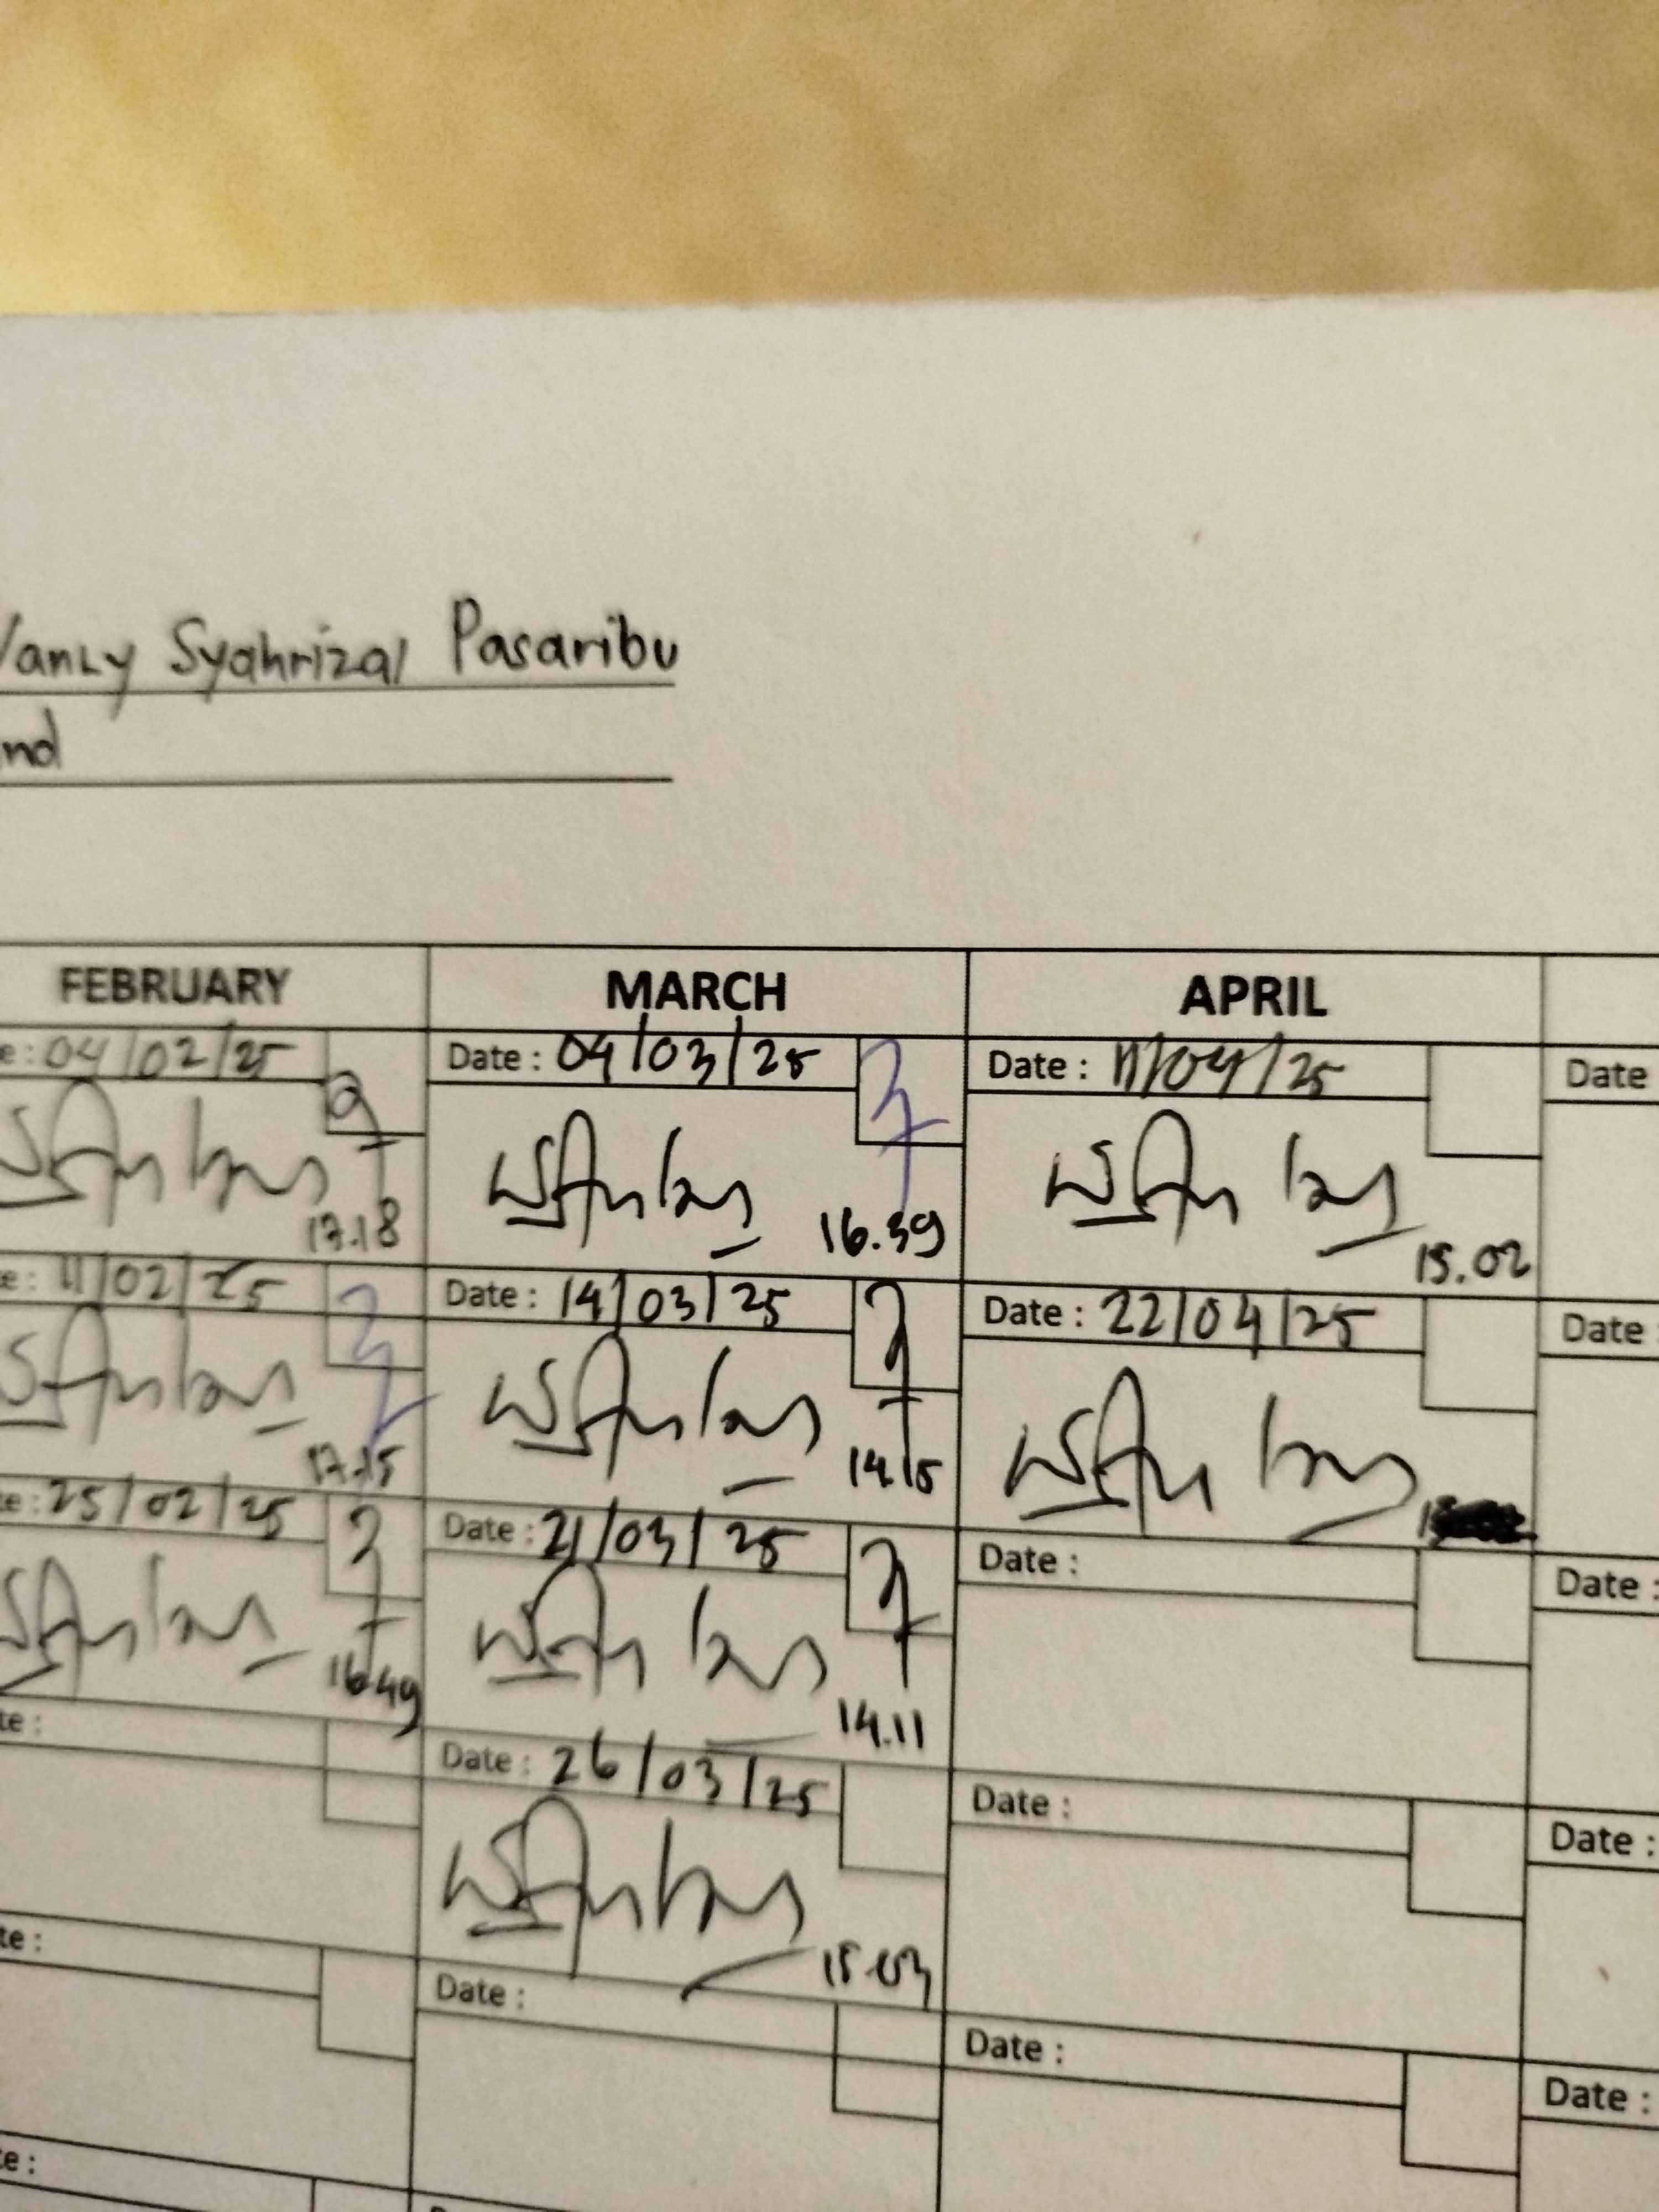 Vanly Syahrizal Pasaribu
nd
FEBRUARY MARCH APRIL
e: 04/02/25 Date : 04/03/25 Date : 11/04/25 Date
17.18 16.39 15.02
e: 11/02/25 Date : 14/03/25 Date : 22/04/25 Date
17.15 14.15
te: 25/02/25 Date : 21/03/25 Date : Date :
16.49 14.11
te : Date : 26/03/25 Date : Date :
15.03
te : Date : Date : Date :
e :